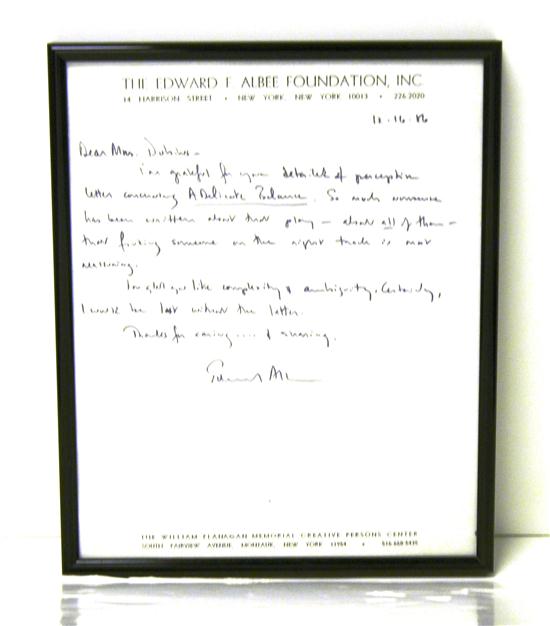 THE EDWARD F ALBEE FOUNDATION, INC
14 HARRISON STREET • NEW YORK, NEW YORK 10013 • 226-2020
Dear Mrs.
I'm grateful for your detailed & perceptive
letter concerning A Delicate Balance. So much nonsense
has been written about that play – about all of them –
that finding someone on the right track is most
I'm glad you like complexity & ambiguity. Certainly,
I would be lost without the latter.
Thanks for caring .... & sharing.
Edward Albee
THE WILLIAM FLANAGAN MEMORIAL CREATIVE PERSONS CENTER
SOUTH FAIRVIEW AVENUE, MONTAUK, NEW YORK 11954 •